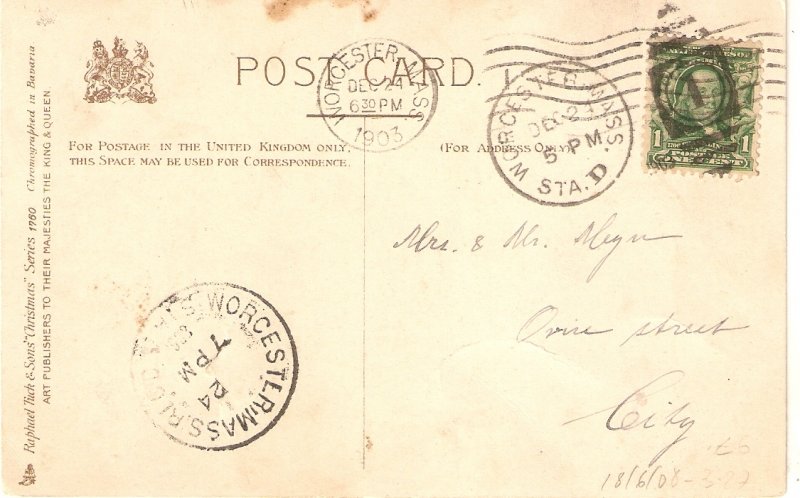 POST CARD.
FOR POSTAGE IN THE UNITED KINGDOM ONLY,
THIS SPACE MAY BE USED FOR CORRESPONDENCE.
(FOR ADDRESS ONLY)
WORCESTER, MASS.
DEC 24
6 30 PM
1903
WORCESTER, MASS.
DEC 24
5 PM
STA. D
1
1
Mrs. & Mr. Meyn
street
City
WORCESTER, MASS.
7 PM
24
18/6/08
Raphael Tuck & Sons' "Christmas" Series 1760 Chromographed in Bavaria
ART PUBLISHERS TO THEIR MAJESTIES THE KING & QUEEN.